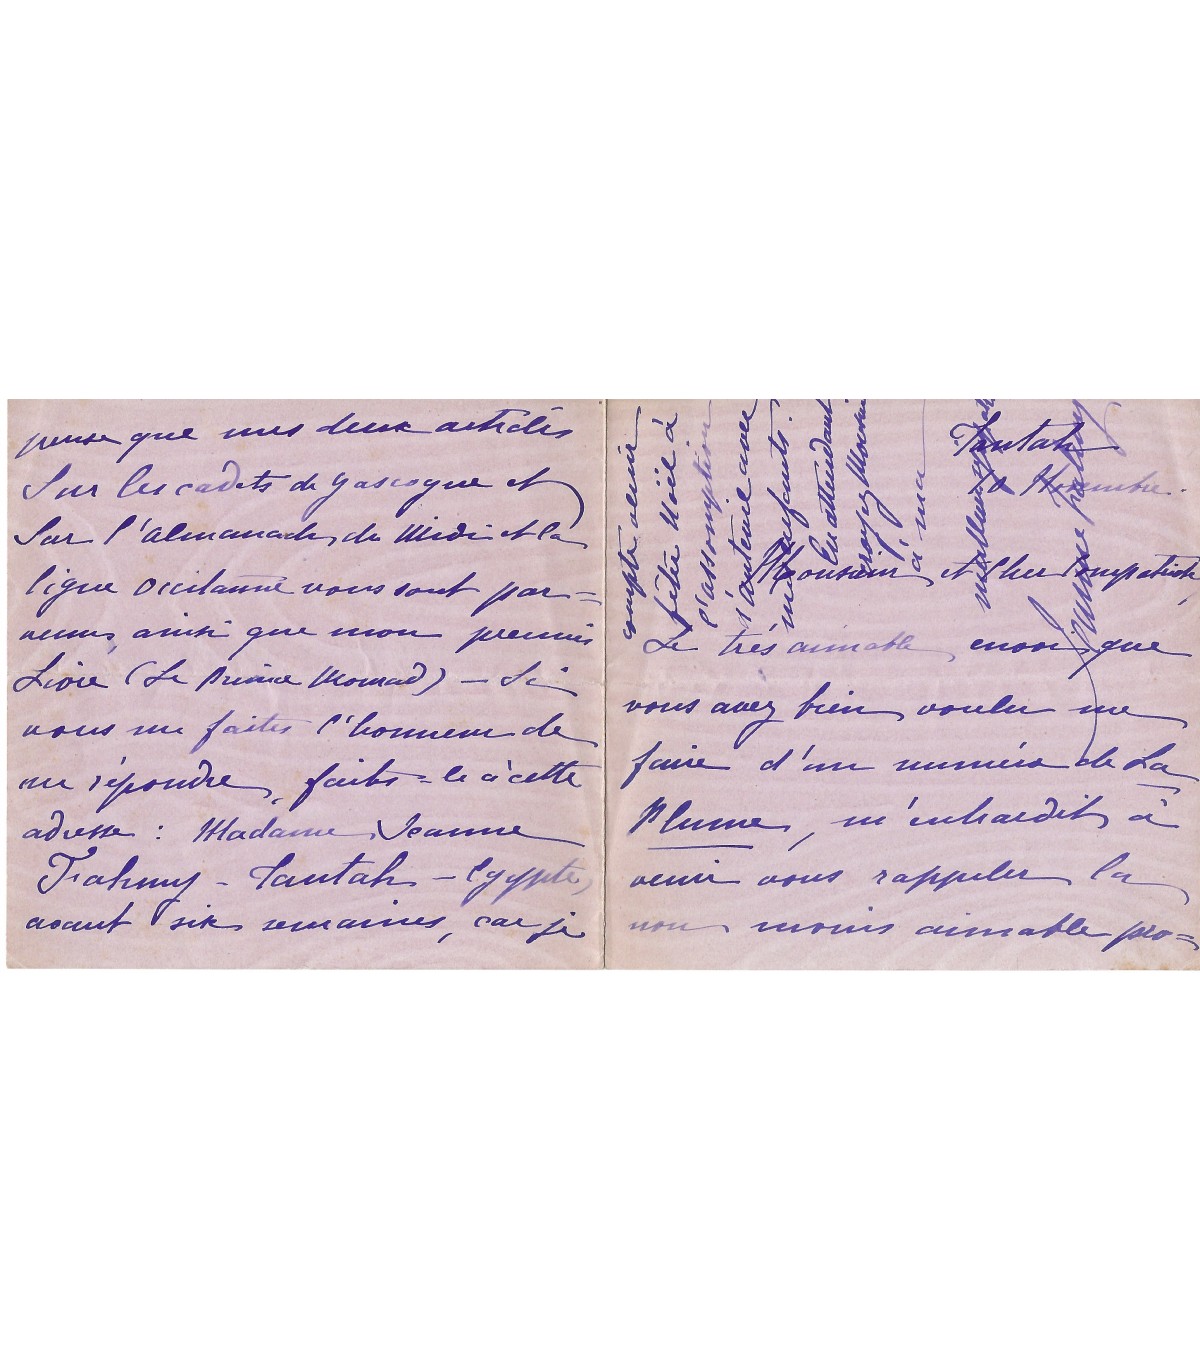 Tantah
Novembre.
Monsieur et Cher Compatriote,
Le très aimable envoi que
vous avez bien voulu me
faire d'un numéro de La
Plume, m'enhardit à
venir vous rappeler la
non moins aimable pro=
pense que mes deux articles
Sur les cadets de Gascogne et
Sur l'Almanach du Midi et la
ligue Occitanne vous sont par=
venus, ainsi que mon premier
Livre (Le Prince Mourad) – Si
vous me faites l'honneur de
me répondre, faites=le à cette
adresse : Madame Jeanne
Fahmy – Tantah – Egypte,
avant six semaines, car je
compte venir
fêter Noël à
l'assomption
d'auteuil avec
mes enfants.
En attendant
croyez Monsieur
à ma
Jeanne Fahmy